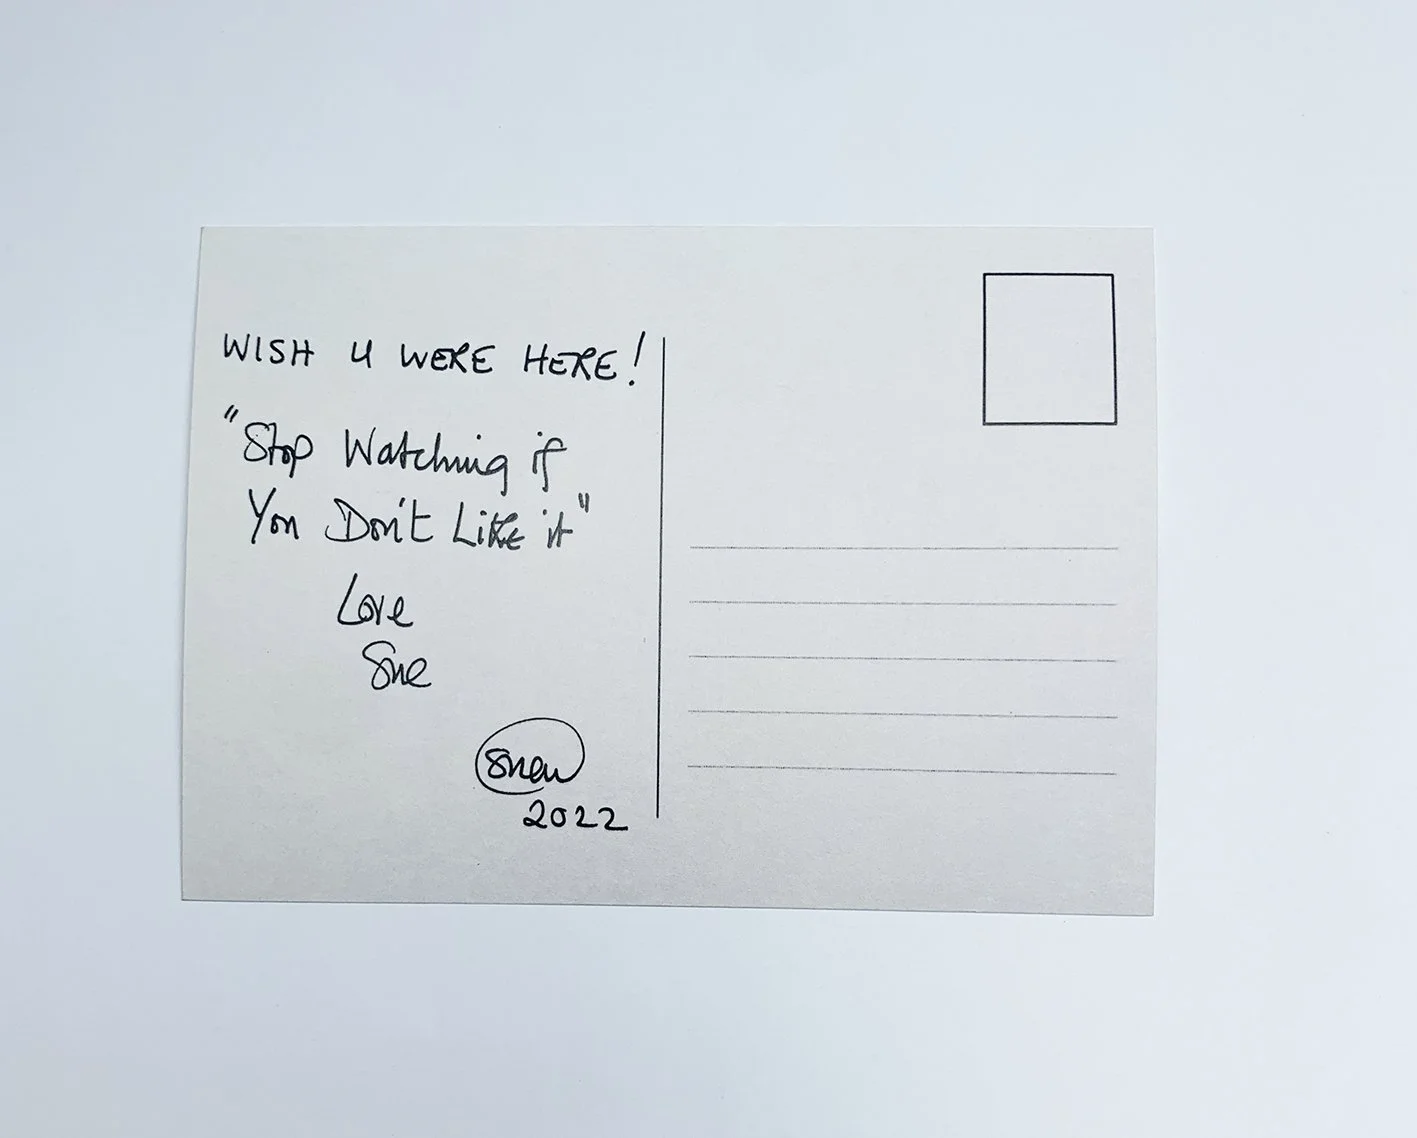 WISH U WERE HERE!
"Stop Watching if
You Don't Like it"
Love
Sue
2022